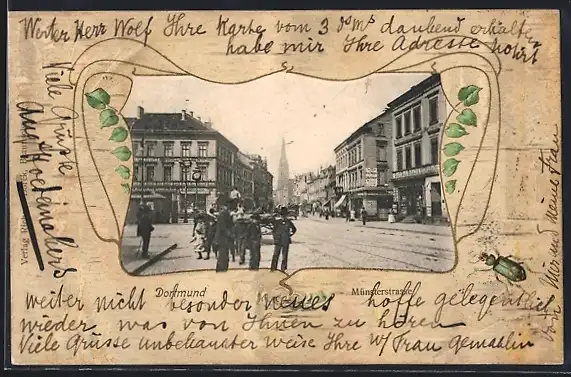 Werter Herr Wolf Ihre Karte vom 3 ds Ms dankend erhalten
habe mir Ihre Adresse notirt
Viele Grüsse
Aug
Verlag
Dortmund
Münsterstrasse
weiter nicht besonder neues hoffe gelegentlich
wieder was von Ihnen zu hören
Viele Grüsse unbekannter weise Ihre W/ Frau Gemahlin
von mir und meine Frau